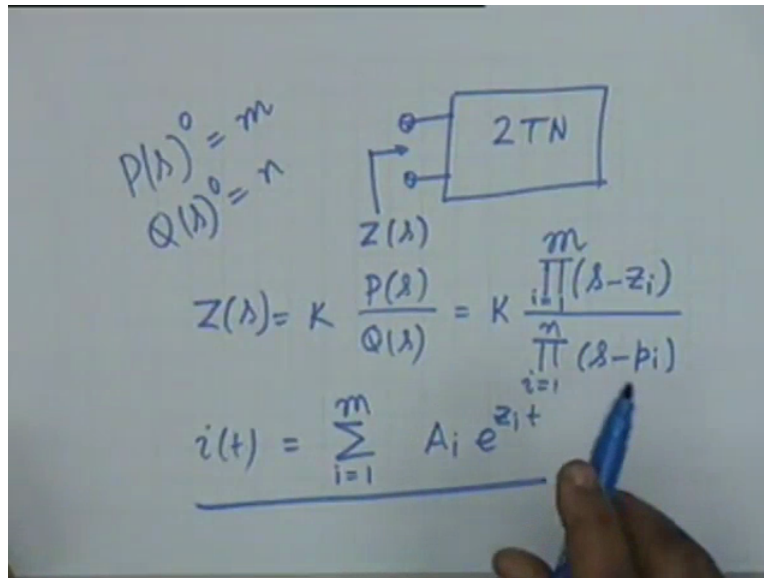 P(s)° = m
Q(s)° = n
2TN
Z(s)
Z(s) = K P(s)/Q(s) = K ∏_{i=1}^{m} (s-z_i) / ∏_{i=1}^{n} (s-p_i)
i(t) = ∑_{i=1}^{m} A_i e^{z_i t}